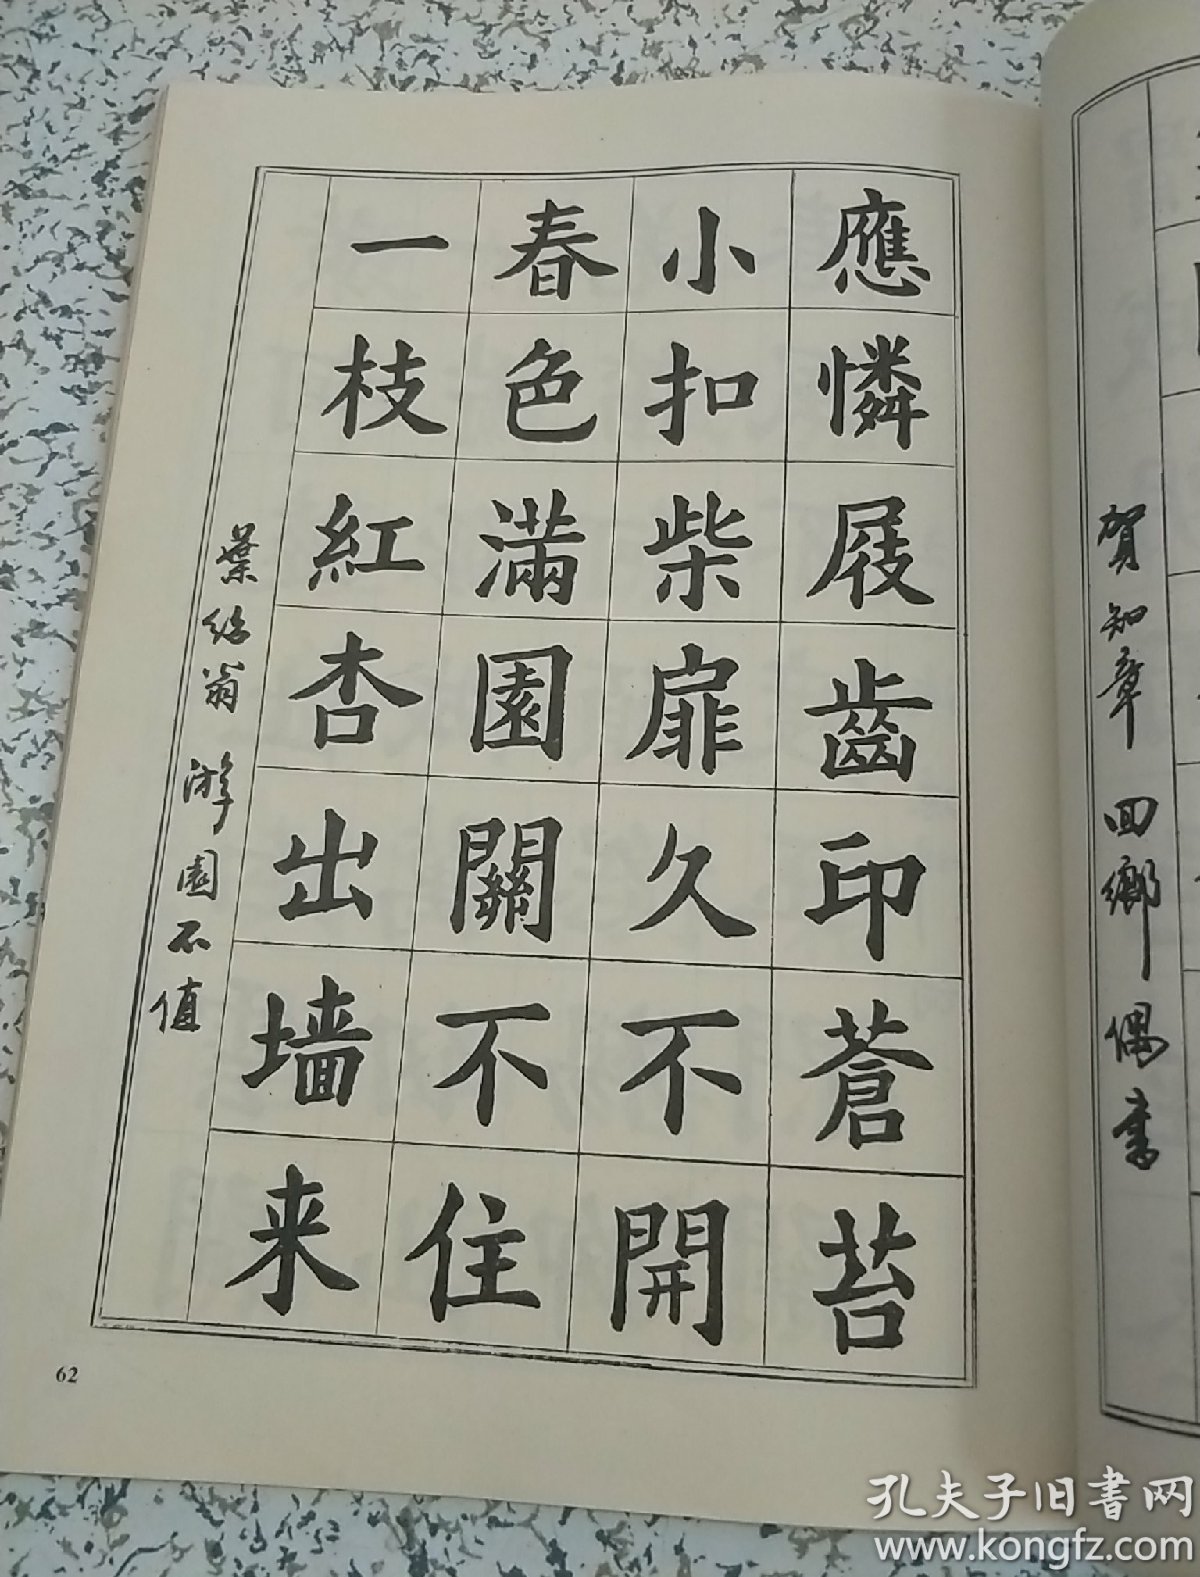 應憐屐齒印蒼苔
小扣柴扉久不開
春色滿園關不住
一枝紅杏出墙来
葉紹翁 游園不值
62
賀知章 回鄉偶書
孔夫子旧书网
www.kongfz.com